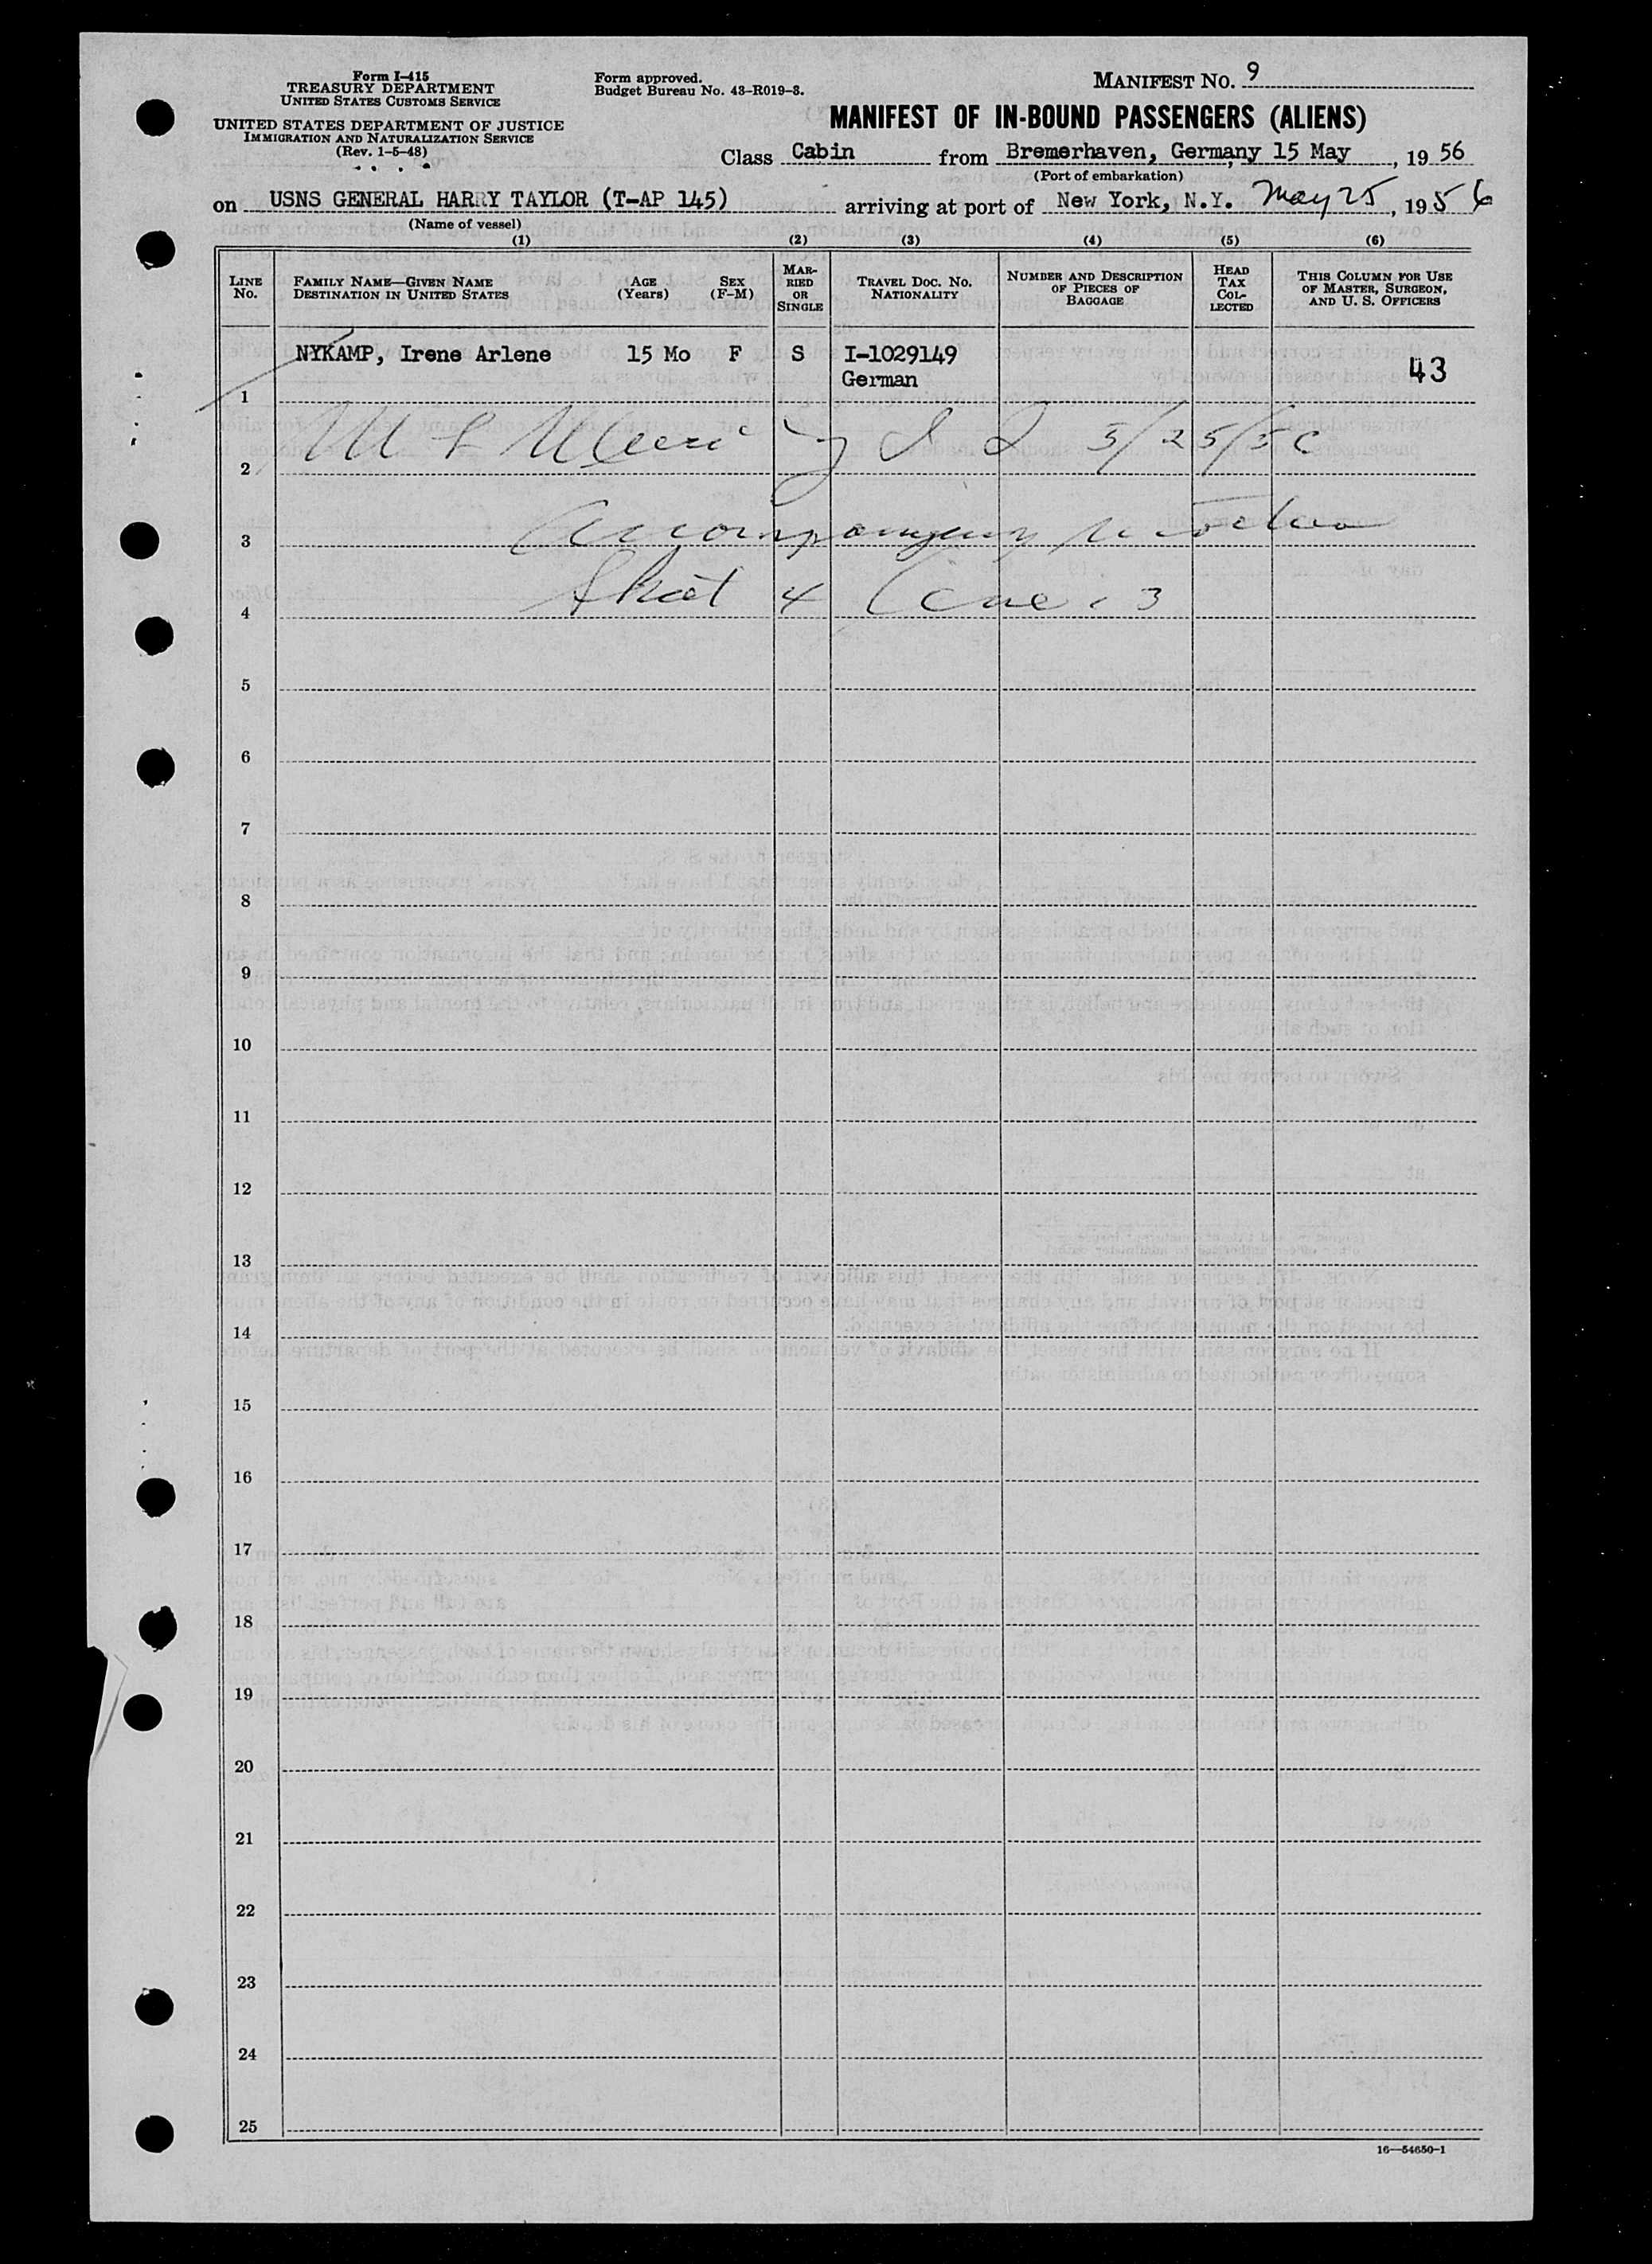 Form I-415
TREASURY DEPARTMENT
UNITED STATES CUSTOMS SERVICE
UNITED STATES DEPARTMENT OF JUSTICE
IMMIGRATION AND NATURALIZATION SERVICE
(Rev. 1-5-48)
Form approved.
Budget Bureau No. 43-R019-3.
MANIFEST NO. 9
MANIFEST OF IN-BOUND PASSENGERS (ALIENS)
Class Cabin from Bremerhaven, Germany, 15 May, 1956
(Port of embarkation)
on USNS GENERAL HARRY TAYLOR (T-AP 145) arriving at port of New York, N.Y. May 25, 1956
(Name of vessel)
(1) (2) (3) (4) (5) (6)
LINE NO.
FAMILY NAME—GIVEN NAME
DESTINATION IN UNITED STATES
AGE (Years)
SEX (F-M)
MARRIED OR SINGLE
TRAVEL DOC. NO.
NATIONALITY
NUMBER AND DESCRIPTION OF PIECES OF BAGGAGE
HEAD TAX COLLECTED
THIS COLUMN FOR USE OF MASTER, SURGEON, AND U. S. OFFICERS
NYKAMP, Irene Arlene 15 Mo F S I-1029149 43
German
1
2 5/25/56
3 accompanying mother
4 Sheet 4 Line 3
5
6
7
8
9
10
11
12
13
14
15
16
17
18
19
20
21
22
23
24
25
16—54650-1